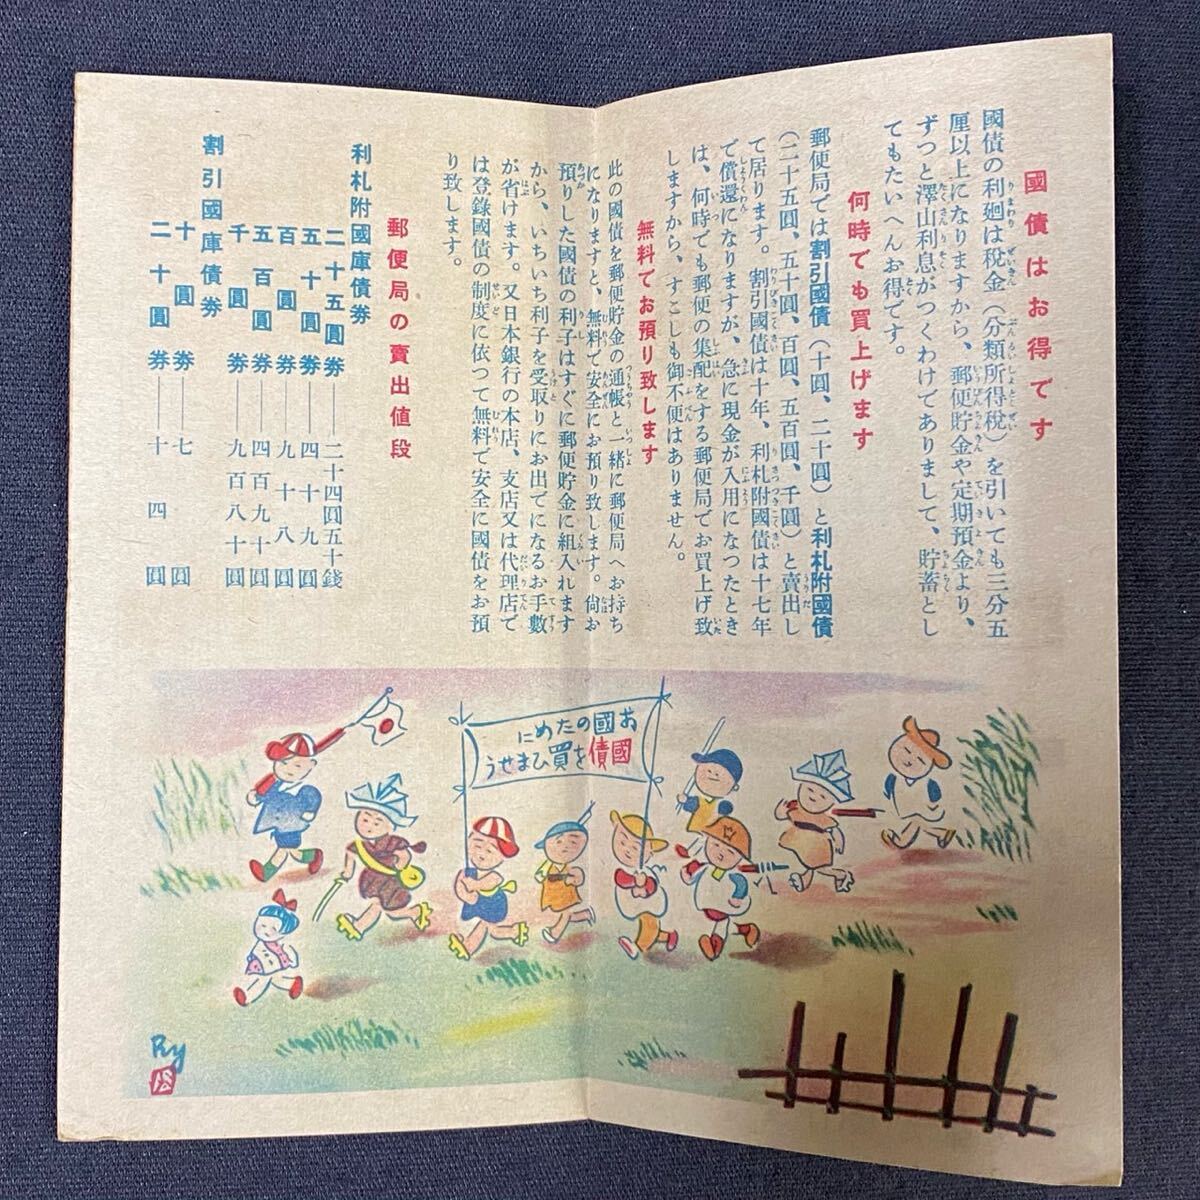 國債はお得です
國債の利廻は税金(分類所得税)を引いても三分五
厘以上になりますから、郵便貯金や定期預金より、
ずつと澤山利息がつくわけでありまして、貯蓄とし
てもたいへんお得です。
何時でも買上げます
郵便局では割引國債(十圓、二十圓)と利札附國債
(二十五圓、五十圓、百圓、五百圓、千圓)と賣出し
て居ります。割引國債は十年、利札附國債は十七年
で償還になりますが、急に現金が入用になつたとき
は、何時でも郵便の集配をする郵便局でお買上げ致
しますから、すこしも御不便はありません。
無料でお預り致します
此の國債を郵便貯金の通帳と一緒に郵便局へお持ち
になりますと、無料で安全にお預り致します。尙お
預りした國債の利子はすぐに郵便貯金に組入れます
から、いちいち利子を受取りにお出でになるお手數
が省けます。又日本銀行の本店、支店又は代理店で
は登錄國債の制度に依つて無料で安全に國債をお預
り致します。
郵便局の賣出値段
利札附國庫債券
二十五圓券――二十四圓五十錢
五十圓券――四十九圓
百圓券――九十八圓
五百圓券――四百九十圓
千圓券――九百八十圓
割引國庫債券
十圓券――七圓
二十圓券――十四圓
お國のために
國債を買ひませう
Ry